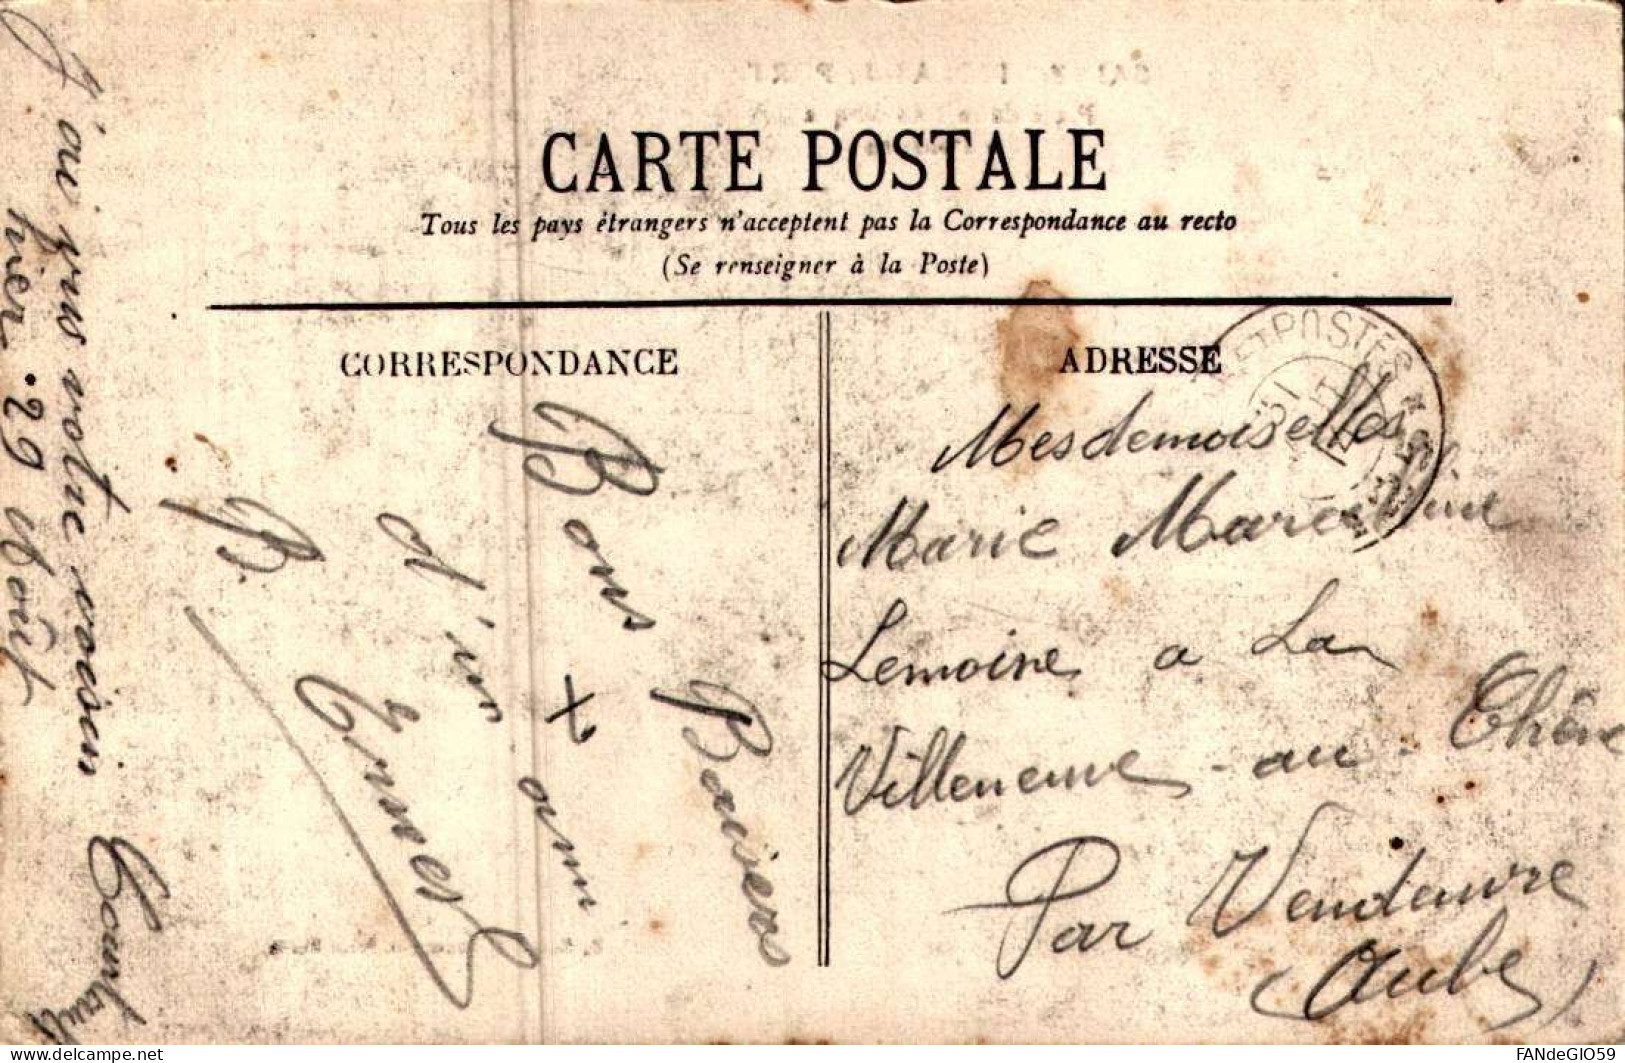 CARTE POSTALE
Tous les pays étrangers n'acceptent pas la Correspondance au recto
(Se renseigner à la Poste)
CORRESPONDANCE
J'ai vu votre voisin
hier . 29 Août
Bons Baisers
d'un ami
B. Ernest
ADRESSE
POSTES
Mesdemoiselles
Marie Marcelline
Lemoine a La
Villeneuve - au - Chêne
Par Vendeuvre
(Aube)
FANdeGIO59